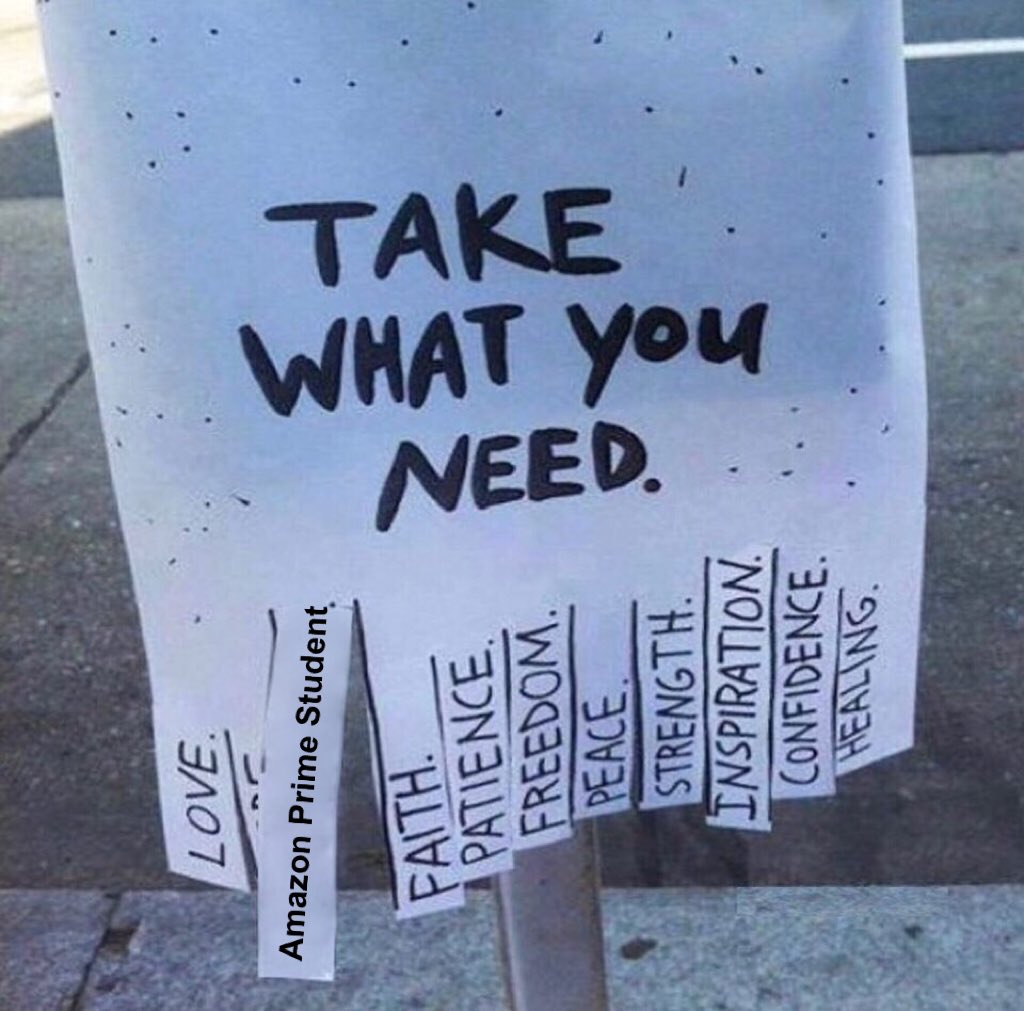 TAKE
WHAT YOU
NEED.
LOVE.
Amazon Prime Student.
FAITH.
PATIENCE.
FREEDOM.
PEACE.
STRENGTH.
INSPIRATION.
CONFIDENCE.
HEALING.